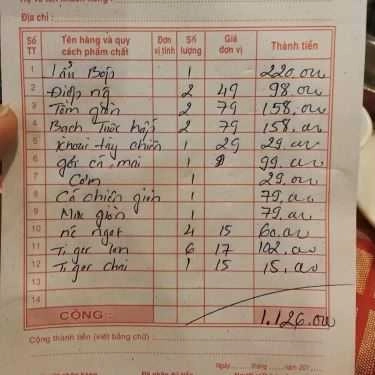 Địa chỉ :
Số TT Tên hàng và quy cách phẩm chất Đơn vị tính Số lượng Giá đơn vị Thành tiền
1 Lẩu Bếp 1 220.00
2 Điệp ng 2 49 98.00
3 Tôm giòn 2 79 158.00
4 Bạch Tuộc hấp 2 79 158.00
5 Khoai tây chiên 1 29 29.00
6 gỏi cá mai 1 99.00
7 Cơm 1 29.00
8 Cá chiên giòn 1 79.00
9 Mực giòn 1 79.00
10 nc ngọt 4 15 60.00
11 Tiger lon 6 17 102.00
12 Tiger chai 1 15 15.00
13
14
CỘNG: 1.126.00
Cộng thành tiền (viết bằng chữ) :
Ngày tháng năm 201